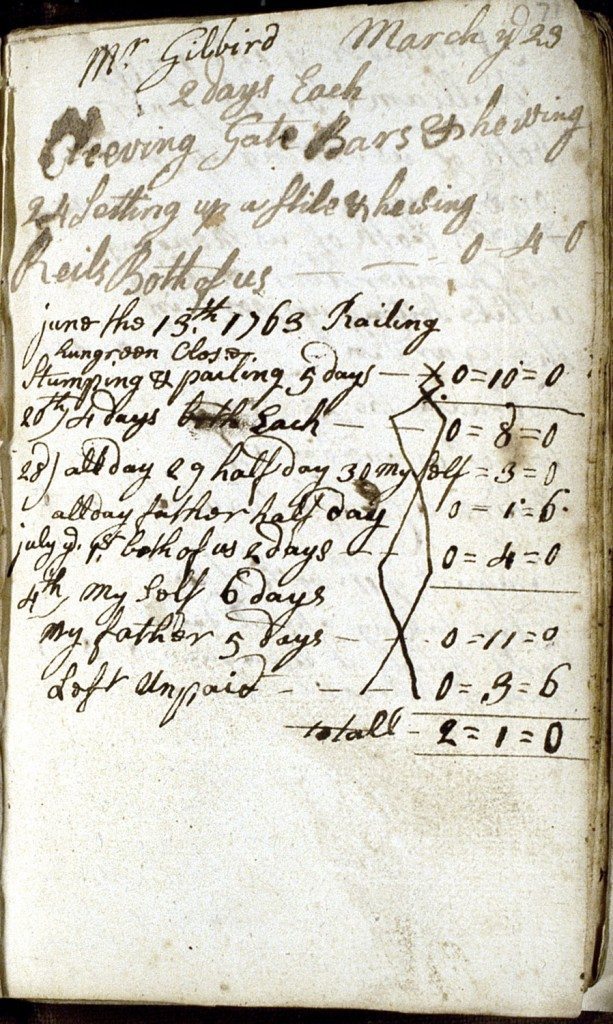 Mr Gilbird March yd 23
2 days Each
Cleeving Gate Bars & hewing
24 Setting up a Stile & hewing
Reils Both of us — — — 0-4-0
june the 13th 1763 Railing
hungreen Close
Stumping & pailing 5 days — 0=10=0
20th) 4 days both Each — — 0=8=0
28) all day 29 half day 30 my self=3=0
all day father half day 0=1=6
july yd 1st both of us 2 days — - 0=4=0
4th, my Self 6 days
my father 5 days — - 0=11=0
Left Unpaid - - — 0=3=6
totall - 2=1=0